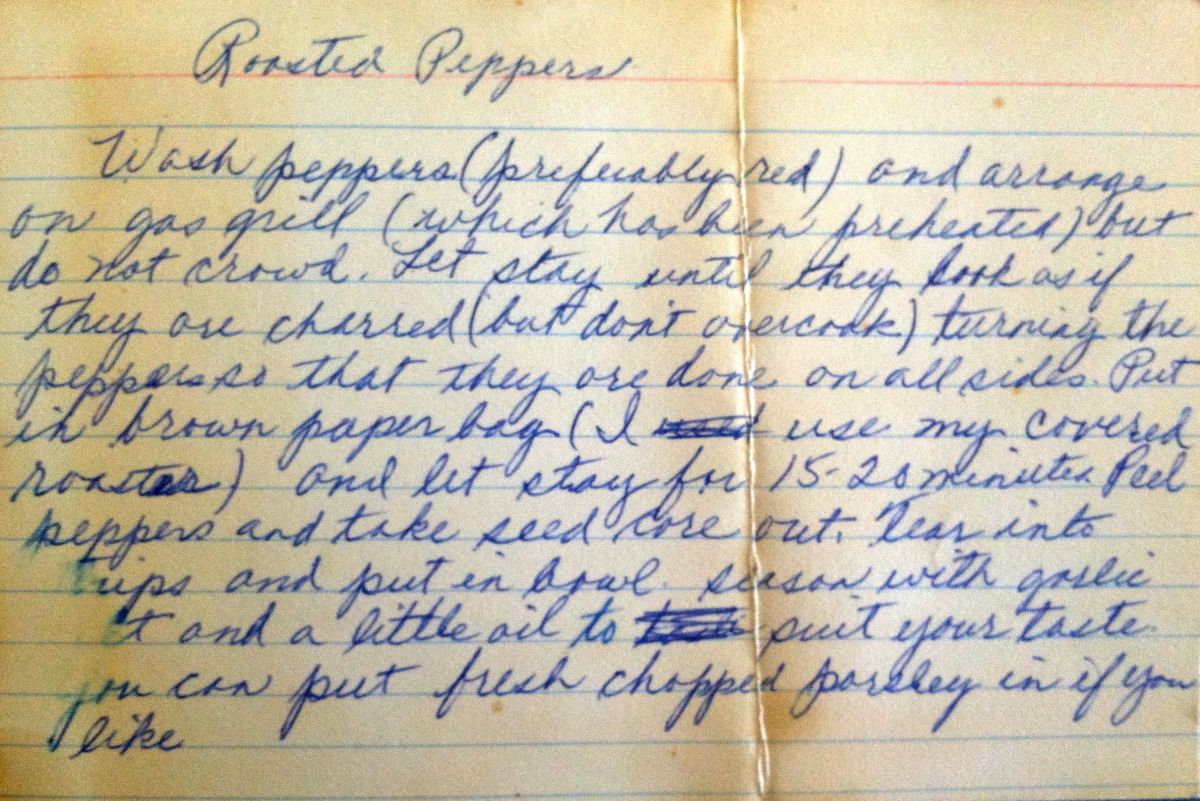 Roasted Peppers
Wash peppers (preferably red) and arrange
on gas grill (which has been preheated) but
do not crowd. Let stay until they look as if
they are charred (but don't overcook) turning the
peppers so that they are done on all sides. Put
in brown paper bag (I use my covered
roaster) and let stay for 15-20 minutes. Peel
peppers and take seed core out. Tear into
rips and put in bowl. season with garlic
t and a little oil to suit your taste.
you can put fresh chopped parsley in if you
like